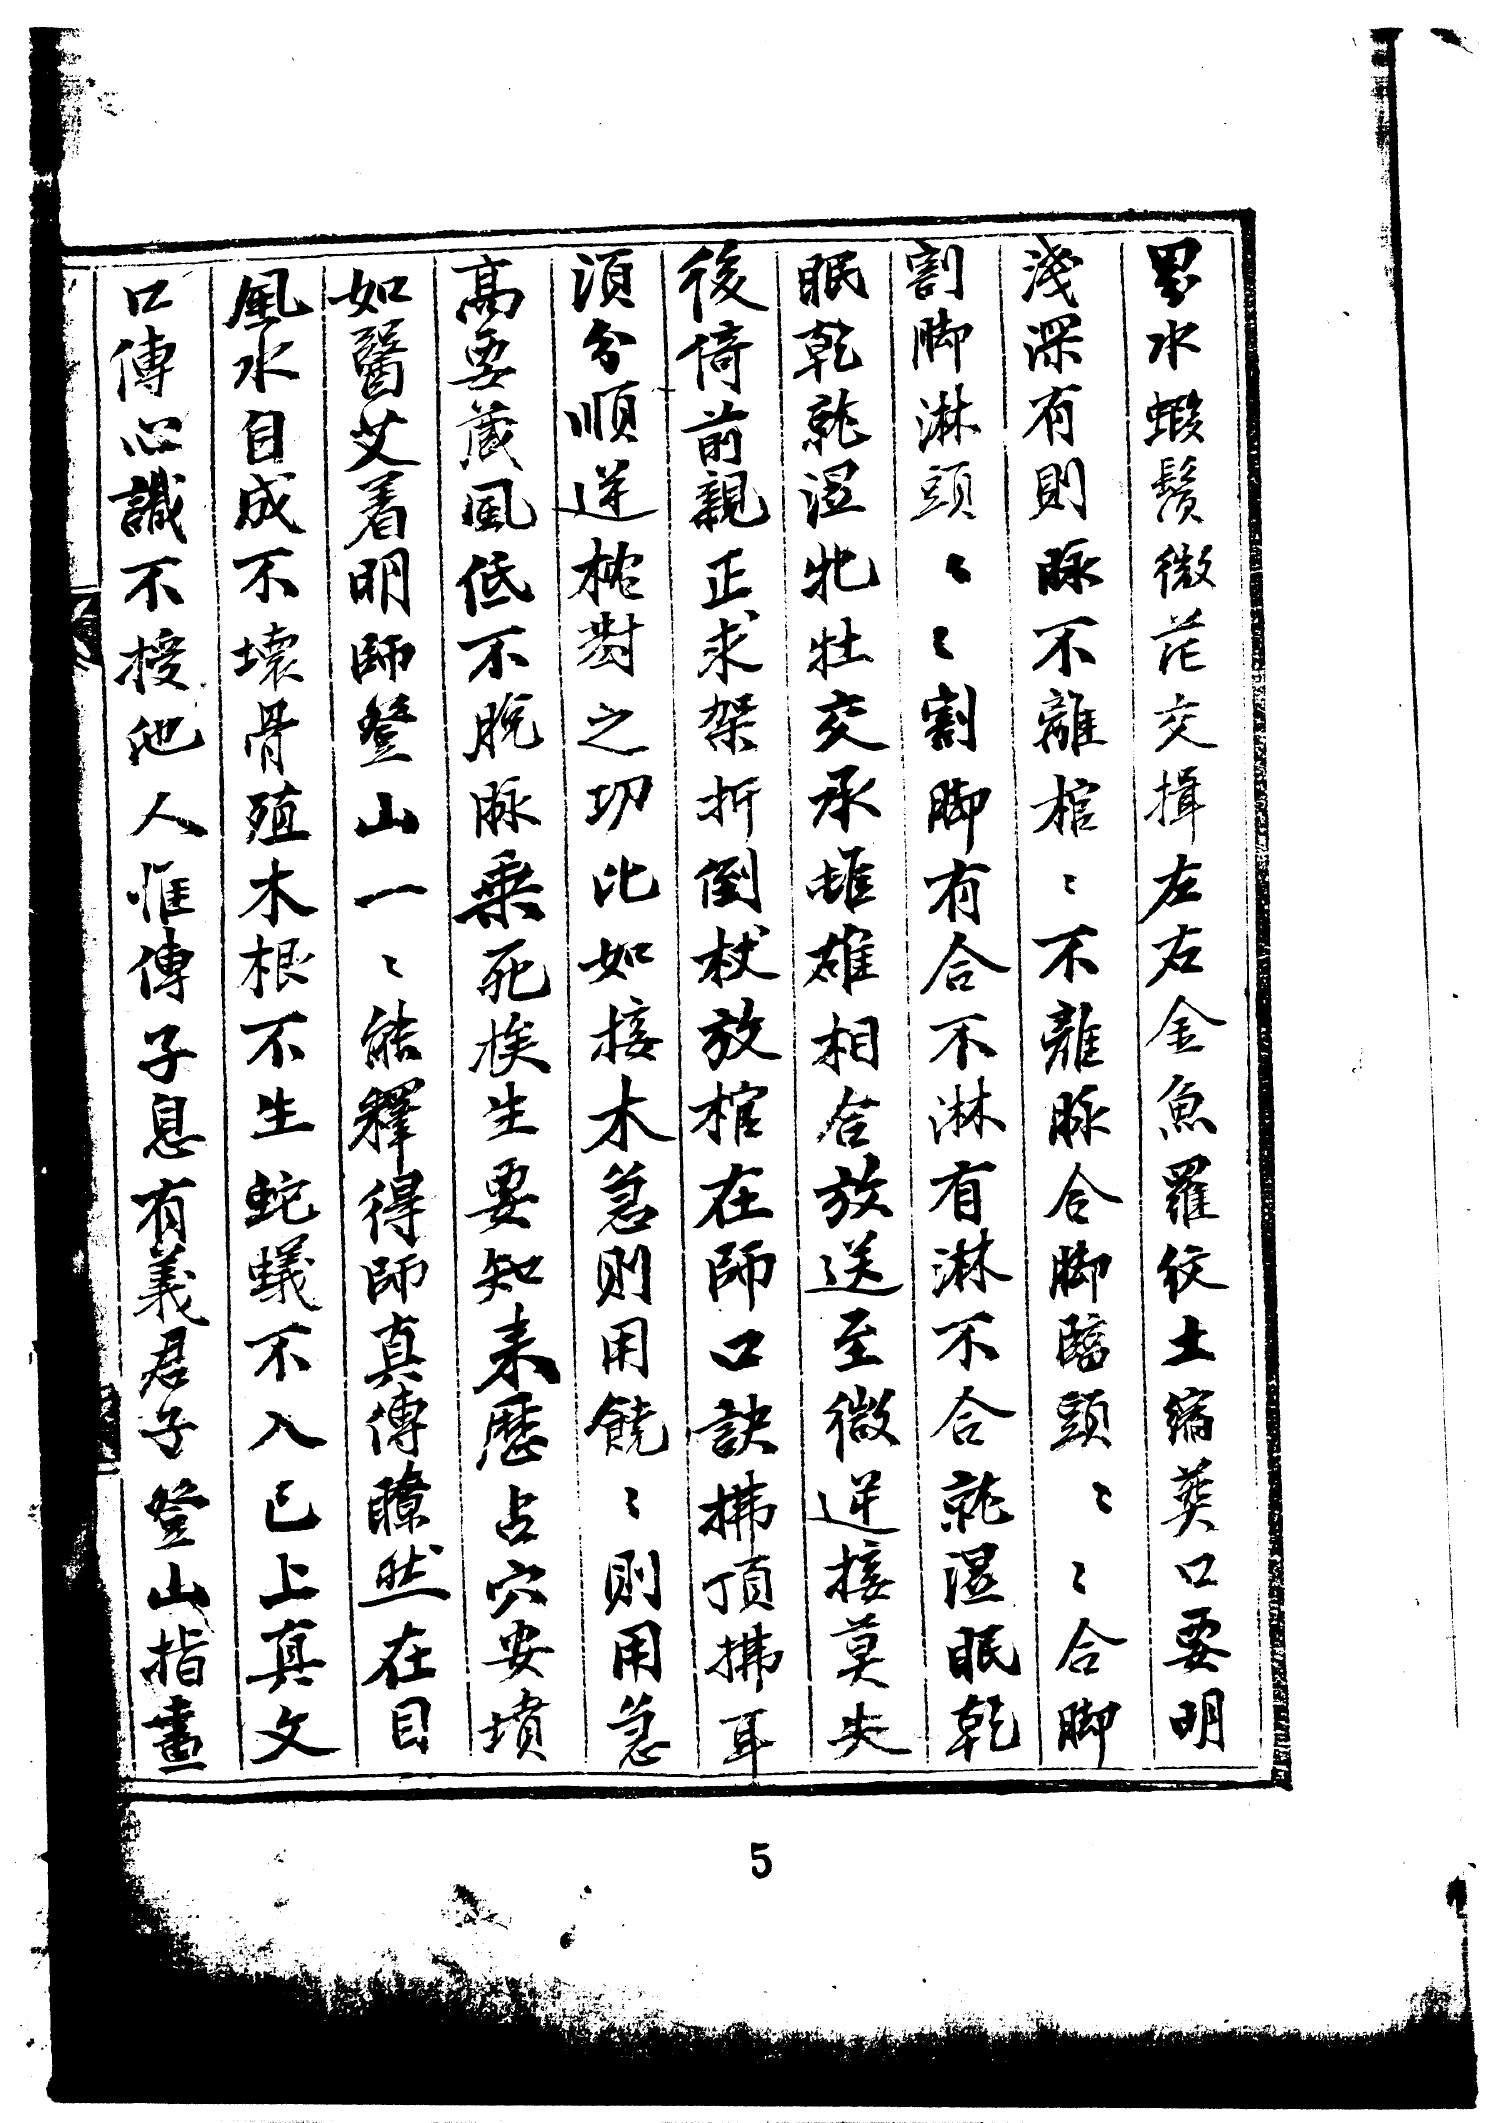 界水蝦鬚微茫交揖左右金魚羅紋土縮葬口要明
淺深有則脉不離棺〻不離脉合脚臨頭〻〻合脚
割脚淋頭〻〻割脚有合不淋有淋不合就湿眠乾
眠乾就湿牝牡交承雌雄相合放送至微逆接莫失
後倚前親正求架折倒杖放棺在師口訣拂頂拂耳
須分順逆枕對之切比如接木急則用饒〻則用急
高要藏風低不脫脉乗死挨生要知来歷占穴安墳
如醫艾着明師登山一〻能釋得師真傳瞭然在目
風水自成不壞骨殖木根不生蛇蟻不入已上真文
口傳心識不授他人惟傳子息有義君子登山指畫
5